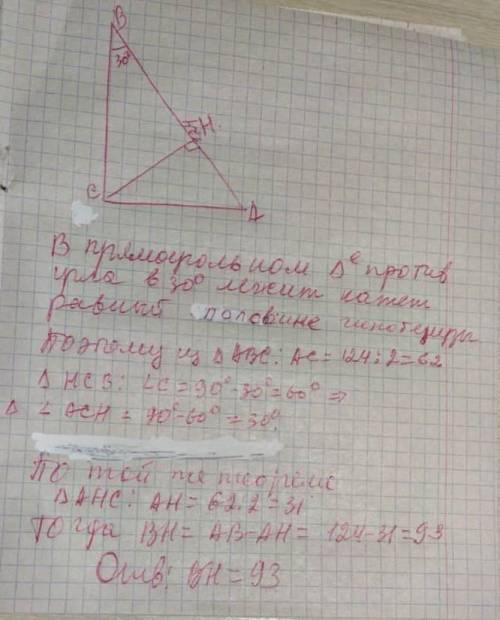 В
30°
Н
С
А
В прямоугольном Δ^е против
угла в 30° лежит катет
равный половине гипотенузы
Поэтому из ΔАВС: АС = 124:2=62
Δ НСВ: ∠С = 90°-30°=60° ⇒
Δ ∠ АСН = 90°-60° = 30°.
По той же теореме
ΔАНС: АН = 62:2=31
Тогда ВН = АВ-АН = 124-31=93
Отв: ВН = 93